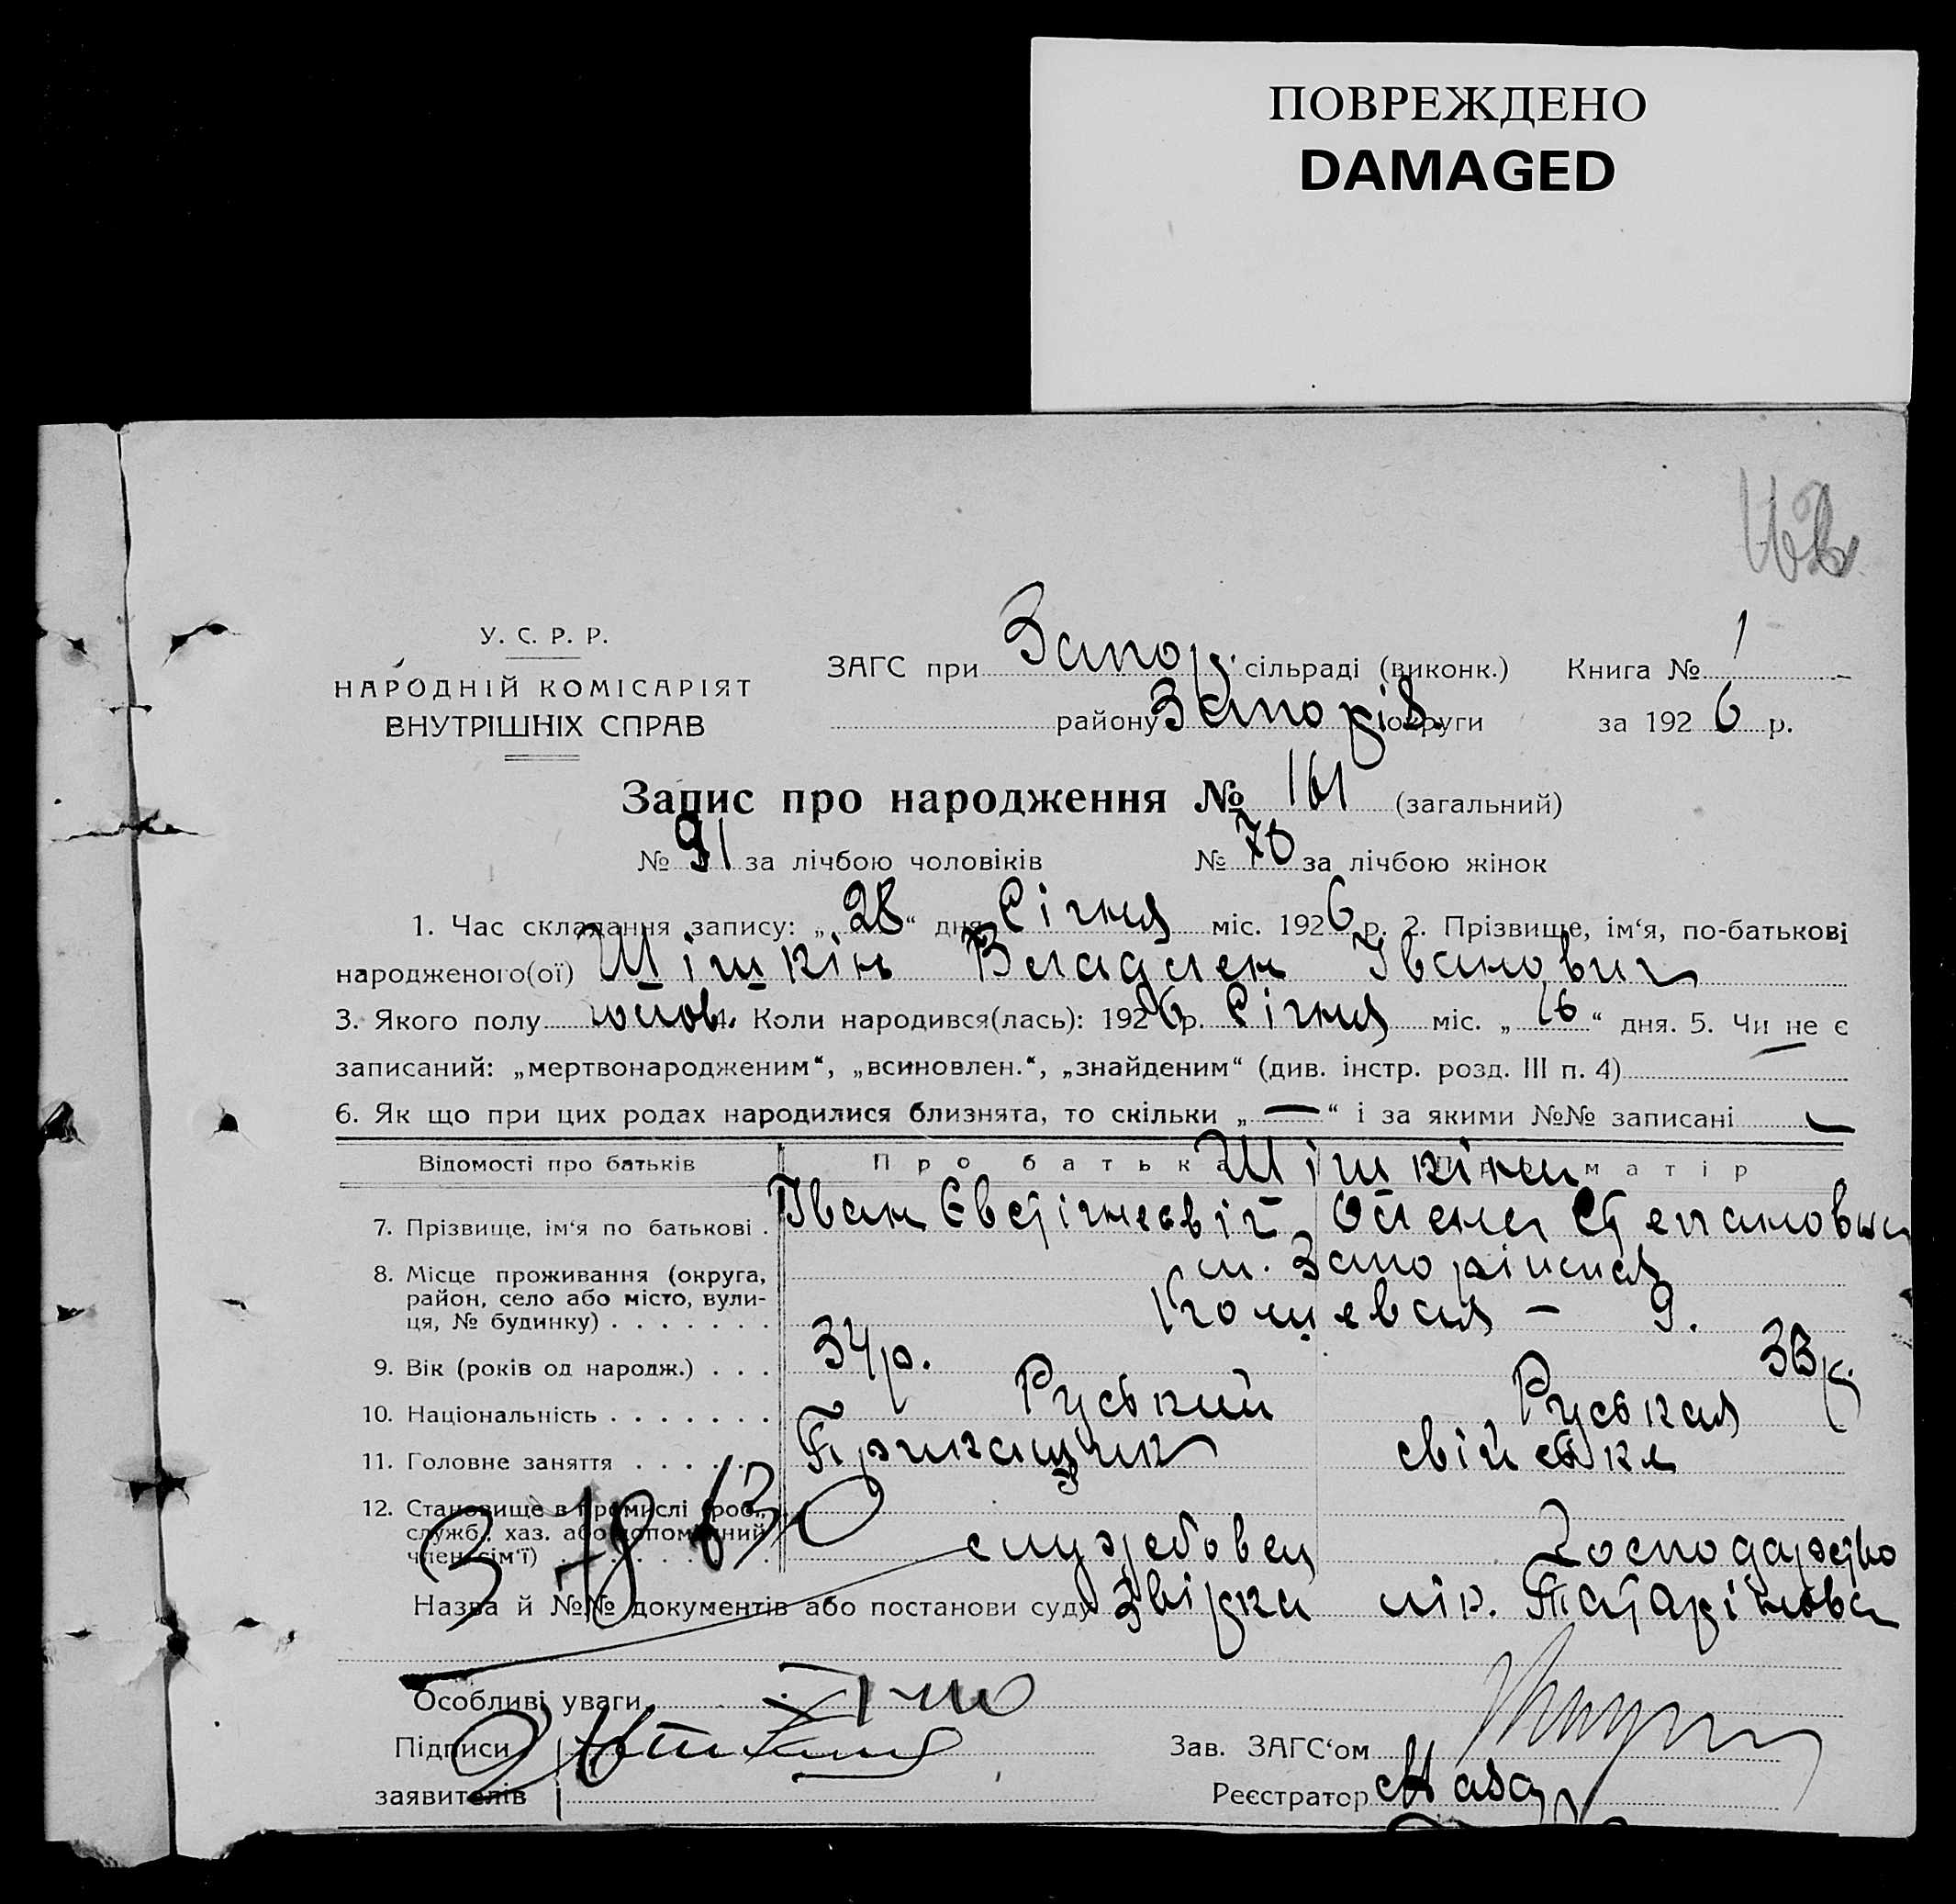 ПОВРЕЖДЕНО
DAMAGED
У. С. Р. Р.
НАРОДНІЙ КОМІСАРІЯТ
ВНУТРІШНІХ СПРАВ
ЗАГС при Запор. сільраді (виконк.) Книга № 1
району Запоріз. округи за 1926 р.
Запис про народження № 161 (загальний)
№ 91 за лічбою чоловіків № 70 за лічбою жінок
1. Час складання запису: „28“ дня Січня міс. 1926 р. 2. Прізвище, ім‘я, по-батькові
народженого(ої) Шішкін Владлен Іванович
3. Якого полу чолов. 4. Коли народився(лась): 1926 р. Січня міс. „16“ дня. 5. Чи не є
записаний: „мертвонародженим“, „всиновлен.“, „знайденим“ (див. інстр. розд. III п. 4)
6. Як що при цих родах народилися близнята, то скільки „—“ і за якими №№ записані —
Відомості про батьків Про батька Про матір
Шішкіни
7. Прізвище, ім‘я по батькові . Іван Євстігнеєвіч Олена Степановна
8. Місце проживання (округа, район, село або місто, вулиця, № будинку) м. Запоріжжя
9.
9. Вік (років од народж.) . . . 34 р. 33 р.
10. Національність . . . . . . . Руський Руская
11. Головне заняття . . . . . . Приказчик
12. Становище в промислі (роб., службв., хаз. або допоміжний член сім‘ї) службовец Господарство
3 18 63
Назва й №№ документів або постанови суду Звірка лік. Татарінова
Особливі уваги
Підписи заявителів
Зав. ЗАГС‘ом
Реєстратор